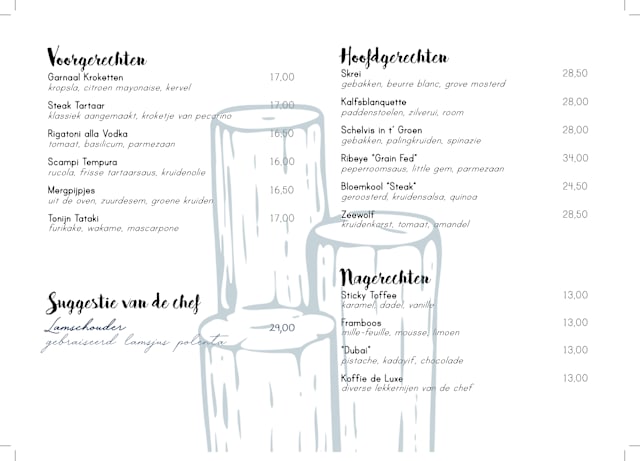 Voorgerechten
Garnaal Kroketten 17,00
kropsla, citroen mayonaise, kervel
Steak Tartaar 17,00
klassiek aangemaakt, kroketje van pecorino
Rigatoni alla Vodka 16,50
tomaat, basilicum, parmezaan
Scampi Tempura 16,00
rucola, frisse tartaarsaus, kruidenolie
Mergpijpjes 16,50
uit de oven, zuurdesem, groene kruiden
Tonijn Tataki 17,00
furikake, wakame, mascarpone
Suggestie van de chef
Lamschouder 29,00
gebraiseerd lamsjus polenta
Hoofdgerechten
Skrei 28,50
gebakken, beurre blanc, grove mosterd
Kalfsblanquette 28,00
paddenstoelen, zilverui, room
Schelvis in t' Groen 28,00
gebakken, palingkruiden, spinazie
Ribeye "Grain Fed" 34,00
peperroomsaus, little gem, parmezaan
Bloemkool "Steak" 24,50
geroosterd, kruidensalsa, quinoa
Zeewolf 28,50
kruidenkorst, tomaat, amandel
Nagerechten
Sticky Toffee 13,00
karamel, dadel, vanille
Framboos 13,00
mille-feuille, mousse, limoen
"Dubai" 13,00
pistache, kadayif, chocolade
Koffie de Luxe 13,00
diverse lekkernijen van de chef